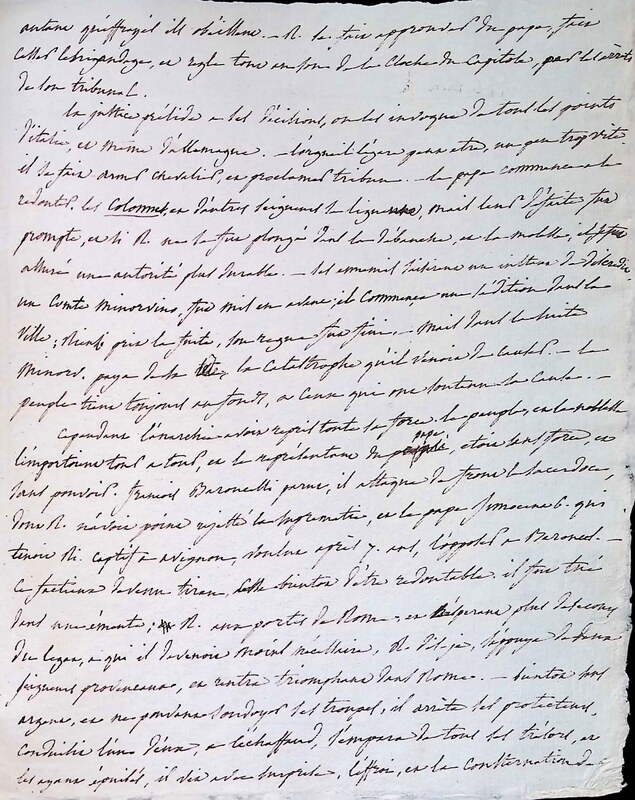 autant qu'effrayés ils obéissent. — R. se fait approuver du pape, fait
cesser le brigandage, et regle tout au son de la Cloche du Capitole, par les arrets
de son tribunal.
la justice préside a ses décisions, on les invoque de tous les points
d'italie, et même d'allemagne. — l'orgueil l'égare peut etre, un peu trop vite.
il se fait armer chevalier, et proclamer tribun. — le pape commence a le
redouter. les Colonnes, et d'autres seigneurs se liguent, mais leur défaite fut
prompte, et si R. ne se fut plongé dans la débauche, et la molesse, il se fut
assuré une autorité plus durable. — les ennemis saisirent un instant de
un Comte Minorvino, fut mis en avant; il commença une sédition dans la
ville; Rienzi prit la fuite, son regne fut fini. — mais dans la suite
Minorv. paya de sa tête, la Catastrophe qu'il venoit de causer. — le
peuple tient toujours au fonds, a ceux qui ont soutenu sa cause. —
Cependant l'anarchie avoit repris toute sa force. le peuple, et la noblesse
s'importoient tous a tous, et le représentant du pape, etoit sans force, et
sans pouvoir. francois Baroncelli parut, il attaque de front le sacerdoce,
dont R. n'avoit point rejetté la suprematie, et le pape innocent 6. qui
tenoit R. captif a avignon, voulut après 7. ans, l'opposer a Baroncel. —
Ce factieux devenu tiran, cessa bientot d'être redoutable. il fut tué
dans une émeute; R. aux portes de Rome, et n'espérant plus de secours
du legat, a qui il devenoit moins nécessaire, R. dis-je, s'appuye de deux
seigneurs provenceaux, et rentre triomphant dans Rome. — bientot sans
argent, et ne pouvant soudoyer ses troupes, il arrête ses protecteurs,
conduisit l'un d'eux, a l'échaffaud, s'empara de tous ses trésors, et
les ayant épuisés, il vit avec surprise, l'effroi, et la consternation de